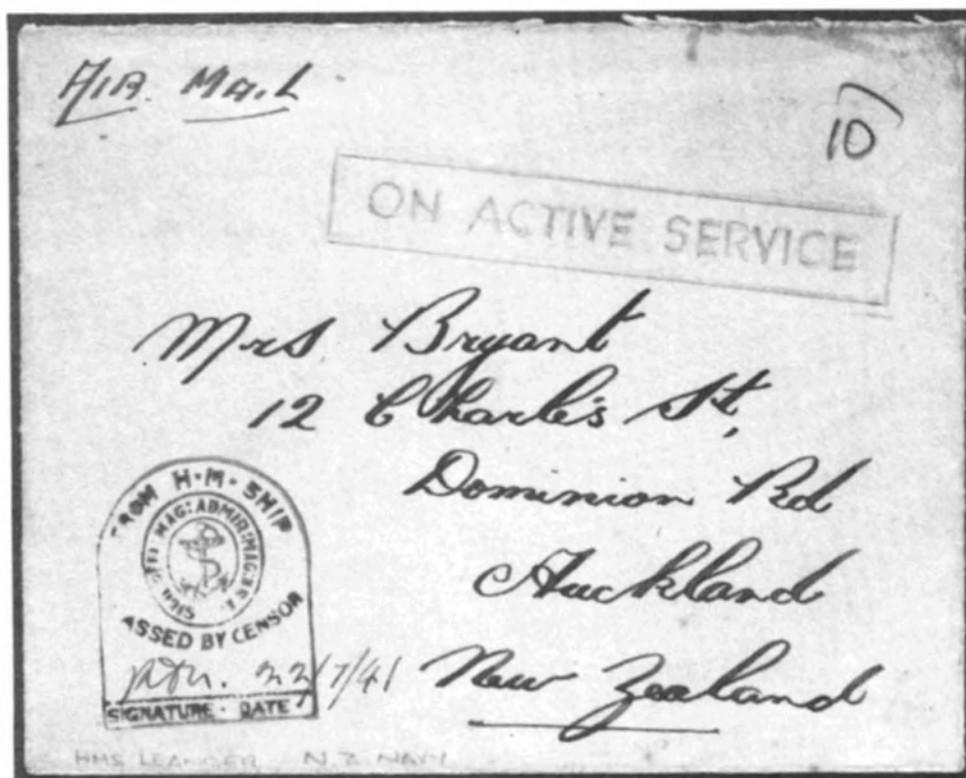 AIR MAIL
10
ON ACTIVE SERVICE
Mrs Bryant
12 Charles St,
Dominion Rd
Auckland
New Zealand
FROM H·M·SHIP
MAG: ADMIR: MAG:
ASSED BY CENSOR
22/7/41
SIGNATURE · DATE
HMS LEANDER N Z NAVY